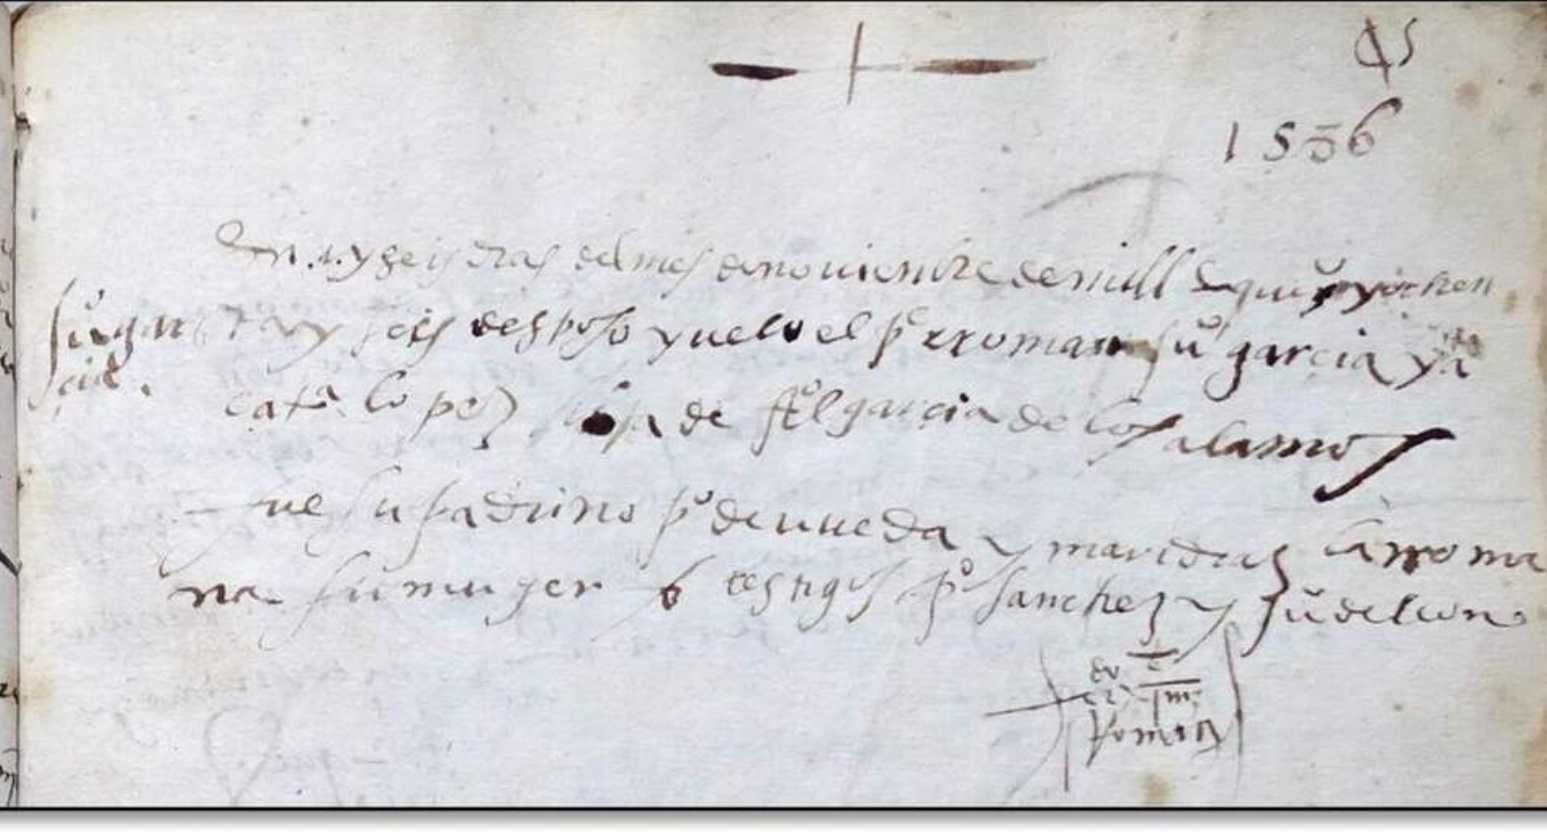 1556
En y seis dias del mes de noviembre de mill e quiºs y ochen
Juº gar ta y seis desposo y velo el pe rroman Juº garcia y a
cia. catª lopez hija de garcia de los alamos
ue su padrino pº de uueda y mari diaz la rroma
na su muger tsº testigos pº sanchez y Juº de leon
Roman